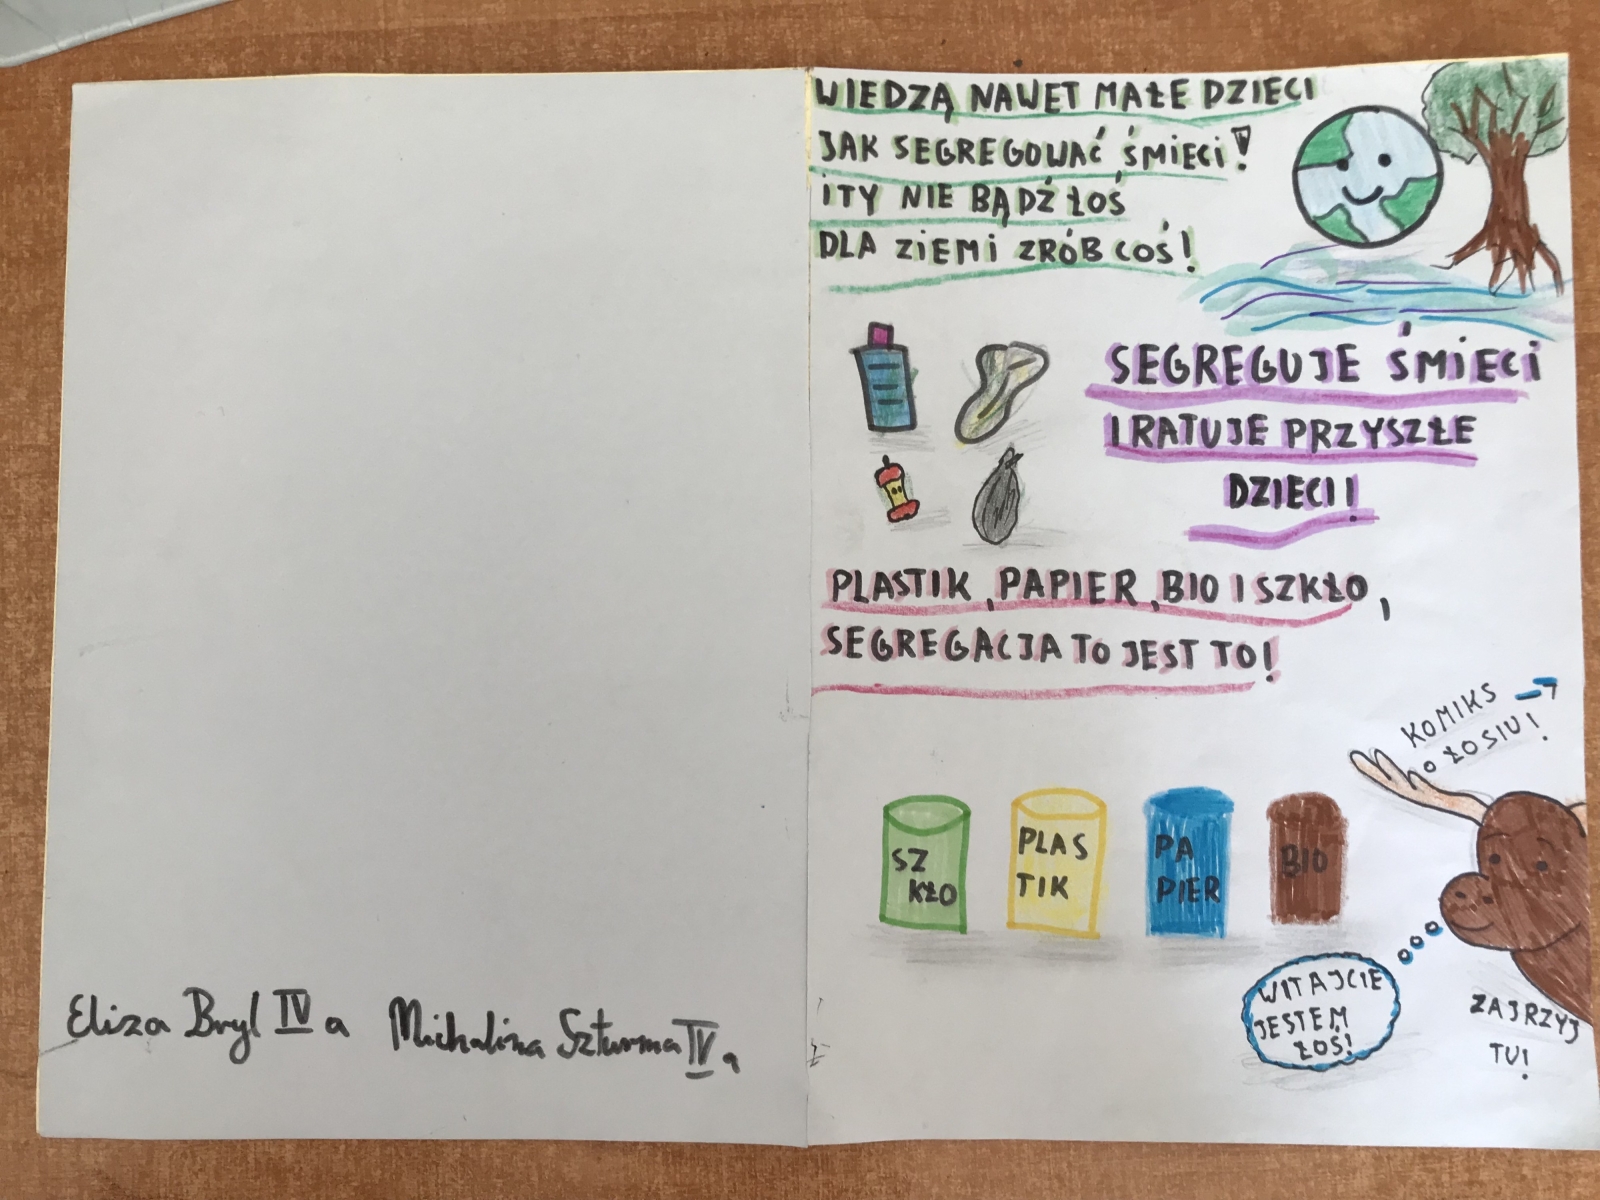 WIEDZĄ NAWET MAŁE DZIECI
JAK SEGREGOWAĆ ŚMIECI!
I TY NIE BĄDŹ ŁOŚ
DLA ZIEMI ZRÓB COŚ!
SEGREGUJE ŚMIECI
I RATUJE PRZYSZŁE
DZIECI!
PLASTIK, PAPIER, BIO I SZKŁO,
SEGREGACJA TO JEST TO!
KOMIKS
O ŁOSIU!
SZ
KŁO
PLAS
TIK
PA
PIER
BIO
WITAJCIE
JESTEM
ŁOŚ!
ZAJRZYJ
TU!
Eliza Bryl IV a Michalina Szturma IV a